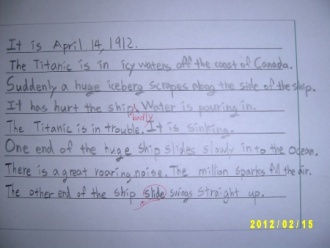 It is April 14, 1912.
The Titanic is in icy waters off the coast of Canada.
Suddenly a huge iceberg scrapes along the side of the ship.
It has hurt the ship badly. Water is pouring in.
The Titanic is in trouble. It is sinking.
One end of the huge ship slides slowly into the Ocean.
There is a great roaring noise. The million sparks fill the air.
The other end of the ship slide swings straight up.
2012/02/15